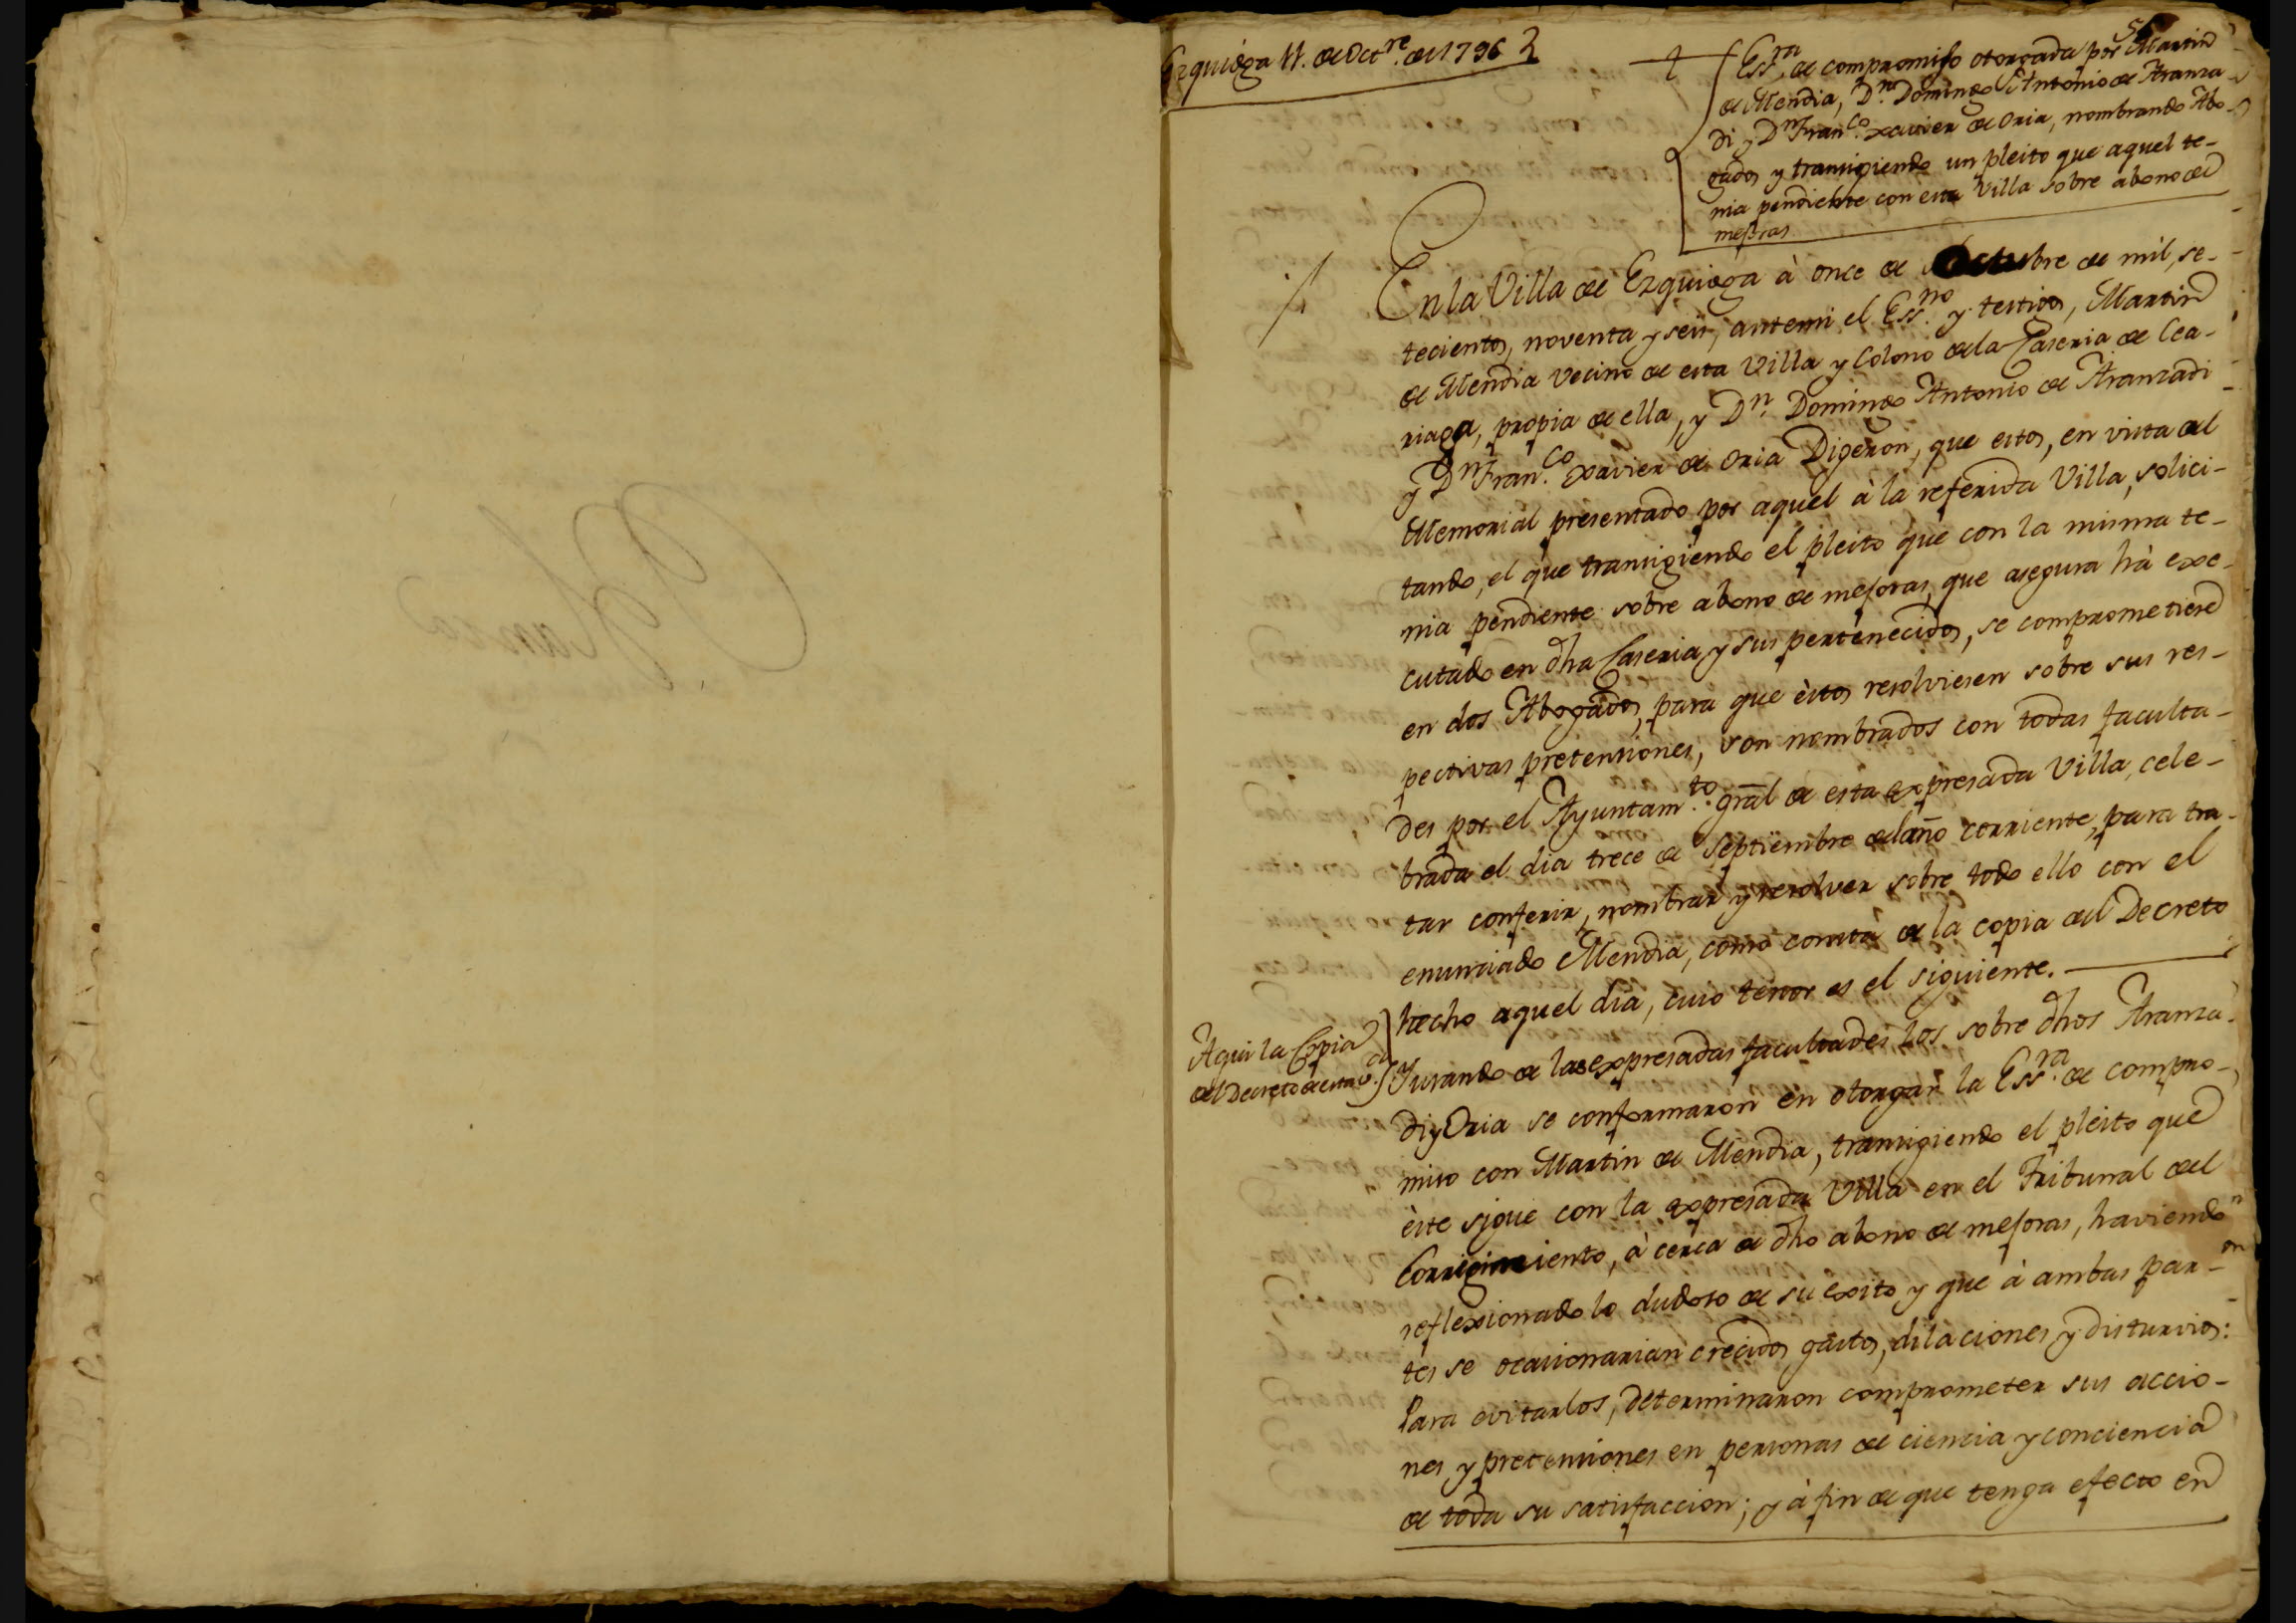 Ezquioga 11. de Oct.re de 1796
56
Ess.ra de compromiso otorgada por Martin
de Mendia, D.n Domingo Antonio de Aranza-
di y D.n Fran.co Xavier de Oria, nombrando Abo-
gados y transigiendo un pleito que aquel te-
nia pendiente con esta Villa sobre abono de
mejoras
En la Villa de Ezquioga à once de Octubre de mil, se-
tecientos, noventa y seis, ante mi el Ess.no y testigos, Martin
de Mendia vecino de esta Villa y Colono de la Caseria de Lea-
riaga, propia de ella, y D.n Domingo Antonio de Aranzadi
y D.n Fran.co Xavier de Oria Digeron, que estos, en vista del
Memorial presentado por aquel à la referida Villa, solici-
tando, el que transigiendo el pleito que con la misma te-
nia pendiente sobre abono de mejoras, que asegura hà exe-
cutado en dha Caseria y sus pertenecidos, se comprometiese
en dos Abogados, para que èstos resolviesen sobre sus res-
pectivas pretensiones, son nombrados con todas faculta-
des por el Ayuntam.to gral de esta expresada Villa, cele-
brada el dia trece de Septiembre del año corriente, para tra-
tar conferir, nombrar y resolver sobre todo ello con el
enunciado Mendia, como consta de la copia del Decreto
hecho aquel dia, cuio tenor es el siguiente.
Aqui la Copia
del Decreto de esta V.
Usando de las expresadas facultades los sobre dhos Aranza-
di y Oria se conformaron en otorgar la Ess.ra de compro-
miso con Martin de Mendia, transigiendo el pleito que
èste sigue con la expresada Villa en el Tribunal del
Corregimiento, à cerca de dho abono de mejoras, haviendo
reflexionado lo dudoso de su exito y que à ambas par-
tes se ocasionarian crecidos gastos, dilaciones y disturvios:
Para evitarlos, determinaron comprometer sus accio-
nes y pretensiones en personas de ciencia y conciencia
de toda su satisfaccion; y à fin de que tenga efecto en